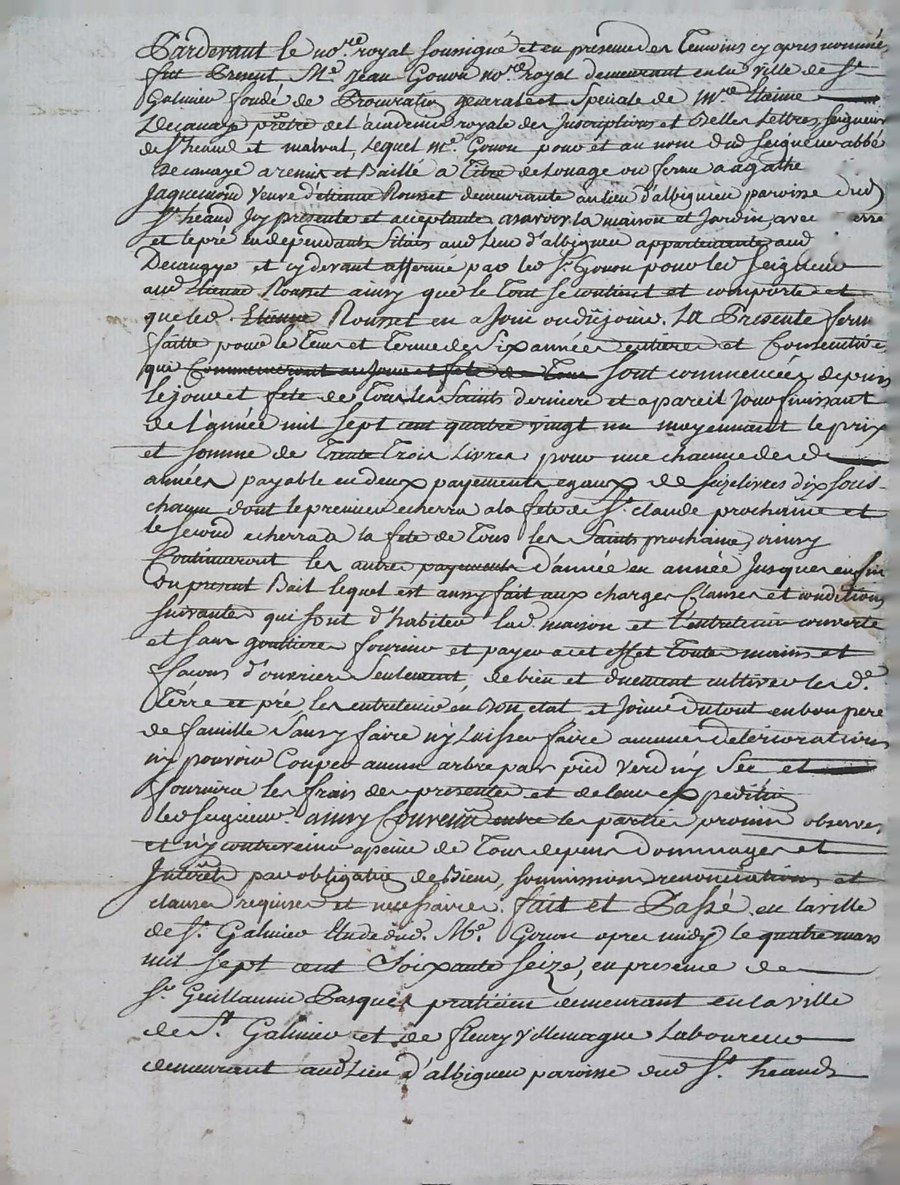 Pardevant le no.re royal soussigné et en presence des Temoins cy apres nommés
fut Present M.e Jean Gonon no.re royal demeurant en la ville de S.t
Galmier fondé de Procuration generale et Speciale de M.re Etienne
Decanaye prêtre de l'academie royale des Inscriptions et Belles Lettres, Seigneur
de S.t heand et malval, Lequel M.e Gonon pour et au nom dud Seigneur abbé
Decanaye a remis et Baillé a Titre de Louage ou ferme a agathe
Jaquemond veuve d'etienne Rousset demeurante au lieu d'albigneu paroisse dud
S.t heand Icy presente et acceptante asavoir la maison et Jardin, avec
et le pré en dependants Situés aud Lieu d'albigneu appartenants aud
Decanaye et cy devant affermé par led S.r Gonon pour led Seigneur
aud etienne Rousset ainsy que le Tout se contient et comporte et
que led. Etienne Rousset en a Joui ou dû jouir. La Presente ferme
faitte pour le Tems et Terme de Six années entieres et Consecutives
qui Commenceront au Jour et fete de Tous sont commencées depuis
le jour et fete de Tous les Saints derniere et a pareil Jour finissant
de l'année mil sept cent quatre vingt un moyennant le prix
et somme de Trente Trois Livres pour une chacune des d
années payable en deux payements egaux de seize livres dix sous
chacun dont le premier echerra a la fete de S.t claude prochaine et
le second echerra a la fete de Tous les Saints prochaine, ainsy
Continueront les autres payements d'année en année Jusques enfin
Du present Bail lequel est aussy fait aux charges Clauses et conditions
suivantes qui sont d'habiter lad. maison et L'entretenir couverte
et sans gouttieres fournir et payer a cet effet Toute mains et
façons d'ouvriers Seulement, de bien et duement cultiver les d.e
Terre et pré, les entretenir en Bon etat et Jouir du tout en bon pere
de famille Sans y faire n'y Laisser faire aucunes deteriorations
n'y pouvoir Couper aucun arbre par pied verd n'y Sec et
fournira les frais des presentes et de leur expedition
led Seigneur. ainsy Convenu entre les parties promis observer
et n'y contrevenir a peine de Tous depens Dommages et
Interêts par obligation de Biens, soumissions renonciations et
clauses requises et necessaires. fait et Passé en la ville
de S.t Galmier Etude dud. M.e Gonon apres midy le quatre mars
mil sept cent Soixante Seize, en presence de
S.r Guillaume Pasques praticien demeurant en la ville
de S.t Galmier et de fleury villemagne Laboureur
demeurant aud. Lieu d'albigneu paroisse dud S.t heand